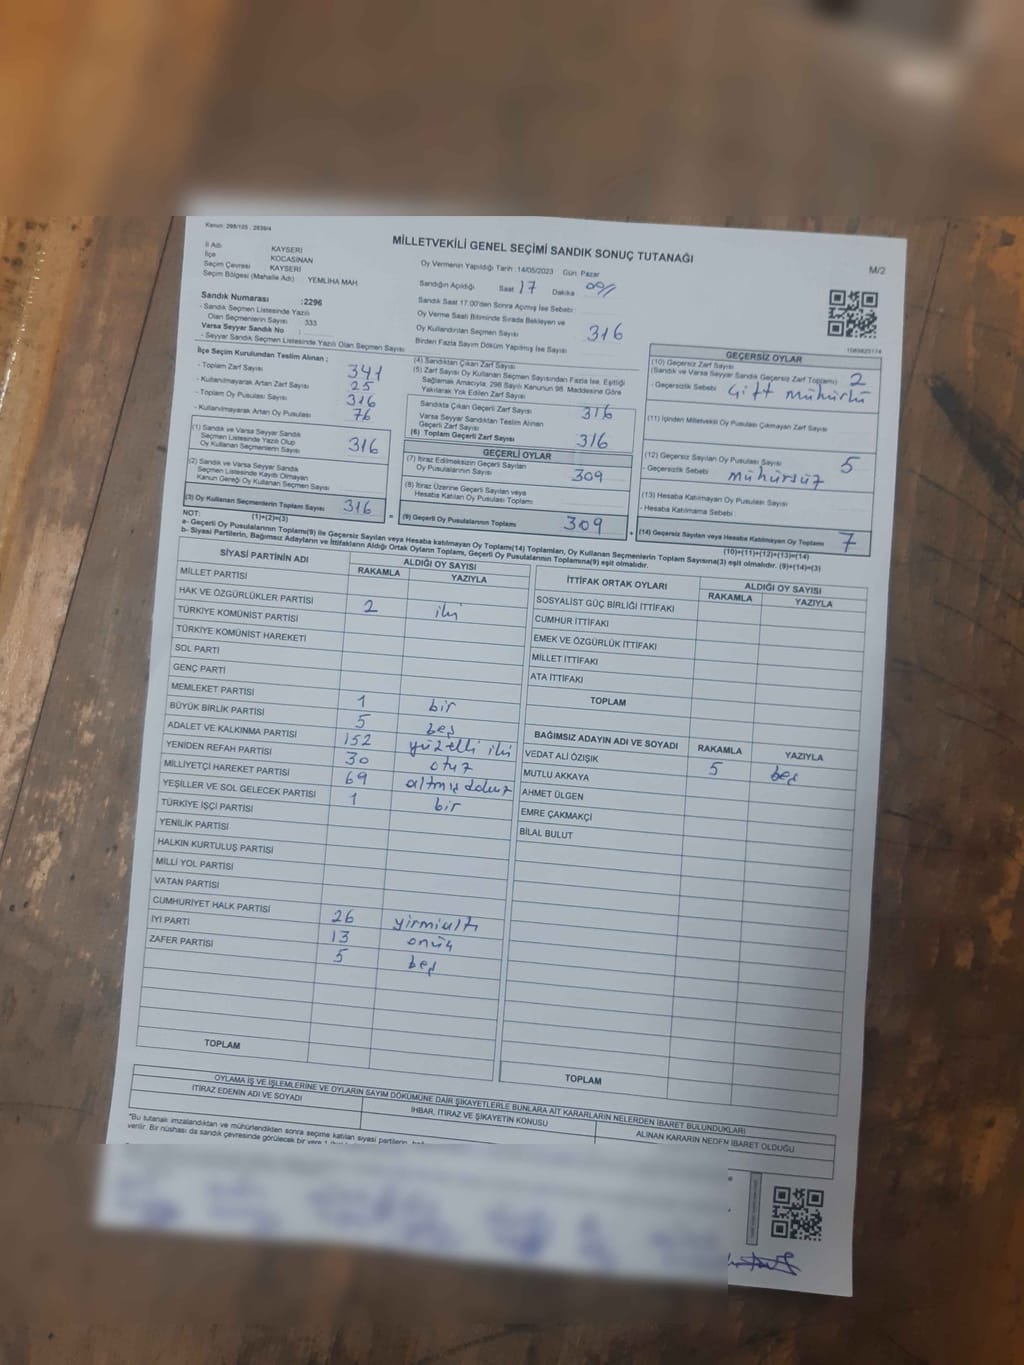 Kanun: 298/105 , 2839/4
MİLLETVEKİLİ GENEL SEÇİMİ SANDIK SONUÇ TUTANAĞI
M/2
İl Adı KAYSERİ
İlçe KOCASİNAN
Seçim Çevresi KAYSERİ
Seçim Bölgesi (Mahalle Adı) : YEMLİHA MAH
Sandık Numarası : 2296
- Sandık Seçmen Listesinde Yazılı
Olan Seçmenlerin Sayısı 333
Varsa Seyyar Sandık No :
- Seyyar Sandık Seçmen Listesinde Yazılı Olan Seçmen Sayısı
Oy Vermenin Yapıldığı Tarih : 14/05/2023 Gün: Pazar
Sandığın Açıldığı Saat 17 Dakika
Sandık Saat 17:00'den Sonra Açılmış İse Sebebi
Oy Verme Saati Bitiminde Sırada Bekleyen ve
Oy Kullandırılan Seçmen Sayısı 316
Birden Fazla Sayım Döküm Yapılmış İse Sayısı
İlçe Seçim Kurulundan Teslim Alınan ;
- Toplam Zarf Sayısı 341
- Kullanılmayarak Artan Zarf Sayısı 25
- Toplam Oy Pusulası Sayısı 316
- Kullanılmayarak Artan Oy Pusulası 76
(1) Sandık ve Varsa Seyyar Sandık
Seçmen Listesinde Yazılı Olup
Oy Kullanan Seçmenlerin Sayısı 316
(2) Sandık ve Varsa Seyyar Sandık
Seçmen Listesinde Kayıtlı Olmayan
Kanun Gereği Oy Kullanan Seçmen Sayısı
(3) Oy Kullanan Seçmenlerin Toplam Sayısı 316
(1)+(2)=(3)
(4) Sandıktan Çıkan Zarf Sayısı
(5) Zarf Sayısı Oy Kullanan Seçmen Sayısından Fazla İse, Eşitliği
Sağlamak Amacıyla, 298 Sayılı Kanunun 98. Maddesine Göre
Yakılarak Yok Edilen Zarf Sayısı
Sandıkta Çıkan Geçerli Zarf Sayısı 316
Varsa Seyyar Sandıktan Teslim Alınan
Geçerli Zarf Sayısı
(6) Toplam Geçerli Zarf Sayısı 316
GEÇERLİ OYLAR
(7) İtiraz Edilmeksizin Geçerli Sayılan
Oy Pusulalarının Sayısı 309
(8) İtiraz Üzerine Geçerli Sayılan veya
Hesaba Katılan Oy Pusulası Toplamı
(9) Geçerli Oy Pusulalarının Toplamı 309
1089825174
GEÇERSİZ OYLAR
(10) Geçersiz Zarf Sayısı
(Sandık ve Varsa Seyyar Sandık Geçersiz Zarf Toplamı) 2
- Geçersizlik Sebebi Çift mühürlü
(11) İçinden Milletvekili Oy Pusulası Çıkmayan Zarf Sayısı
(12) Geçersiz Sayılan Oy Pusulası Sayısı 5
- Geçersizlik Sebebi mühürsüz
(13) Hesaba Katılmayan Oy Pusulası Sayısı
- Hesaba Katılmama Sebebi
(14) Geçersiz Sayılan veya Hesaba Katılmayan Oy Toplamı 7
(10)+(11)+(12)+(13)=(14)
NOT:
a- Geçerli Oy Pusulalarının Toplamı(9) ile Geçersiz Sayılan veya Hesaba Katılmayan Oy Toplamı(14) Toplamları, Oy Kullanan Seçmenlerin Toplam Sayısına(3) eşit olmalıdır. (9)+(14)=(3)
b- Siyasi Partilerin, Bağımsız Adayların ve İttifakların Aldığı Ortak Oyların Toplamı, Geçerli Oy Pusulalarının Toplamına(9) eşit olmalıdır.
SİYASİ PARTİNİN ADI ALDIĞI OY SAYISI
RAKAMLA YAZIYLA
MİLLET PARTİSİ
HAK VE ÖZGÜRLÜKLER PARTİSİ 2 iki
TÜRKİYE KOMÜNİST PARTİSİ
TÜRKİYE KOMÜNİST HAREKETİ
SOL PARTİ
GENÇ PARTİ
MEMLEKET PARTİSİ 1 bir
BÜYÜK BİRLİK PARTİSİ 5 beş
ADALET VE KALKINMA PARTİSİ 152 yüzelli iki
YENİDEN REFAH PARTİSİ 30 otuz
MİLLİYETÇİ HAREKET PARTİSİ 69 altmış dokuz
YEŞİLLER VE SOL GELECEK PARTİSİ 1 bir
TÜRKİYE İŞÇİ PARTİSİ
YENİLİK PARTİSİ
HALKIN KURTULUŞ PARTİSİ
MİLLİ YOL PARTİSİ
VATAN PARTİSİ
CUMHURİYET HALK PARTİSİ 26 yirmialtı
İYİ PARTİ 13 onüç
ZAFER PARTİSİ 5 beş
TOPLAM
İTTİFAK ORTAK OYLARI ALDIĞI OY SAYISI
RAKAMLA YAZIYLA
SOSYALİST GÜÇ BİRLİĞİ İTTİFAKI
CUMHUR İTTİFAKI
EMEK VE ÖZGÜRLÜK İTTİFAKI
MİLLET İTTİFAKI
ATA İTTİFAKI
TOPLAM
BAĞIMSIZ ADAYIN ADI VE SOYADI RAKAMLA YAZIYLA
VEDAT ALİ ÖZIŞIK 5 beş
MUTLU AKKAYA
AHMET ÜLGEN
EMRE ÇAKMAKÇİ
BİLAL BULUT
TOPLAM
OYLAMA İŞ VE İŞLEMLERİNE VE OYLARIN SAYIM DÖKÜMÜNE DAİR ŞİKAYETLERLE BUNLARA AİT KARARLARIN NELERDEN İBARET BULUNDUKLARI
İTİRAZ EDENİN ADI VE SOYADI
İHBAR, İTİRAZ VE ŞİKAYETİN KONUSU
ALINAN KARARIN NEDEN İBARET OLDUĞU
*Bu tutanak imzalandıktan ve mühürlendikten sonra seçime katılan siyasi partilerin,
verilir. Bir nüshası da sandık çevresinde görülecek bir yere